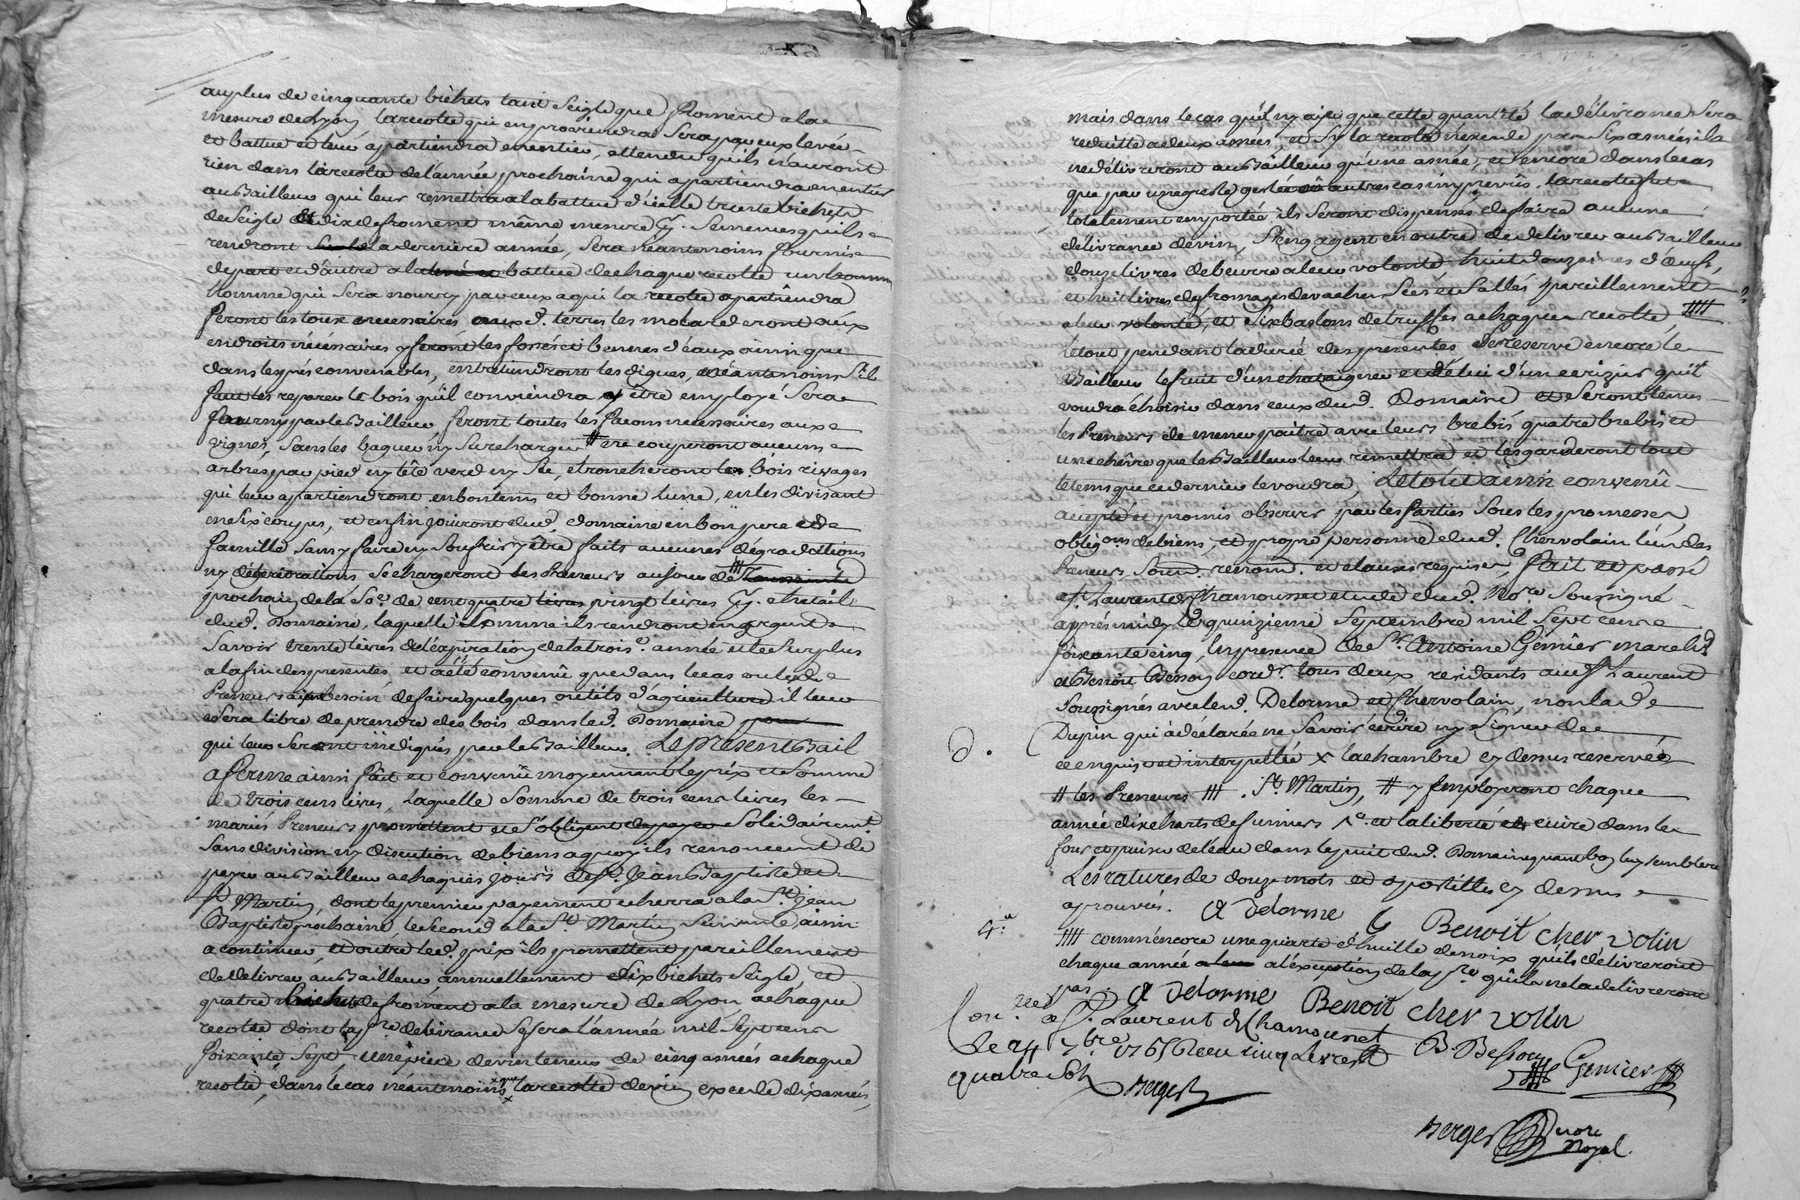 auplus de cinquante bichets tant Seigle que froment a la
mesure de Lyon, la recolte qui en proviendra Sera par eux levée
et battue et leur apartiendra en entier, attendu qu'ils n'auront
rien dans la recolte de l'année prochaine qui apartiendra en entier
au Bailleur qui leur remettra a la battue d'icelle trente bichets
de Seigle et dix de froment même mesure Semences qu'ils
rendront la derniere année, Sera néantmoins fournis
de part et d'autre a la battue de chaque recolte un homme
homme qui Sera nourry par eux a qui la recolte apartiendra
feront les toux necessaires auxd. terres les mola deront aux
endroits nécessaires y feront les fossés et bennes d'eaux ainsi que
dans les prés convenables, entretiendront les digues, et néantmoins S'il
faut les reparer le bois qu'il conviendra y être employé Sera
fourny par le Bailleur feront toutes les façons necessaires aux
vignes, Sans les baquer ny Surcharger # ne couperont aucuns
arbres par pied ny tête verd ny Sec, etroncheront les bois rivages
qui leur apartiendront en bon tems et bonne lune, en les divisant
en Six coupes, et enfin jouiront dud. domaine en bon pere de
famille Sans y faire ny Soufrir y être faits aucunes dégradations
ny déteriorations Se chargeront les Preneurs au jour de
prochain de la Se. de cent quatre vingt livres de betail
dud. Domaine, laquelle Somme ils rendront en argent
Savoir trente livres a l'expiration de la trois.e année et le Surplus
a la fin des presentes et a été convenû que dans le cas ou lesd.
Preneurs aient besoin de faire quelques outils d'agriculture il leur
Sera libre de prendre des bois dans led. Domaine
qui leur Seront indiqués par le Bailleur. Le présent Bail
a ferme ainsi fait et convenû moyennant le prix et Somme
de trois cens livres, laquelle Somme de trois cens livres les
mariés Preneurs promettent et S'obligent de payer Solidairem.t
Sans division ny discution de biens a quoy ils renoncent de
payer au Bailleur a chaques jours de St. Jean Baptiste et
St. Martin, dont le premier payement echerra a la St. Jean
Baptiste prochaine, le Second a la St. Martin Suivante, ainsi
a continuer, et outre led. prix ils promettent pareillement
de delivrer au Bailleur annuellement dix bichets Seigle, et
quatre bichets de froment a la mesure de Lyon a chaque
recolte dont la p.re delivrance Se fera l'année mil Sept cens
Soixante Sept une piece de vin teneur de cinq asnées a chaque
recolte, dans le cas néantmoins que la recolte de vin excede dix asnées,
mais dans le cas qu'il n'y aye que cette quantité la délivrance Sera
reduitte a deux asnées, et Sy la recolte n'excede pas Six asnées ils
ne délivreront au Bailleur qu'une asnée, et encore dans le cas
que par une grele gelée ou autres cas imprevûs, la recolte fut
totalement emportée, ils Seront dispensés de faire aucune
délivrance de vin, S'engagent en outre de delivrer au Bailleur
douze livres de beurre a leur volonté huit douzaines d'oeufs,
et huit livres de fromages de vaches Secs et Sallés pareillement
a leur volonté, et Six baslons de truffes a chaque recolte ####
Le tout pendant la durée des presentes Se reserve encore le
Bailleur le fruit d'un chataigner et celui d'un cerizier qu'il
voudra choisir dans ceux dud. Domaine et Seront tenus
les Preneurs de mener paitre avec leurs brebis quatre brebis et
une chêvre que le Bailleur leur remettra et les garderont tout
le tems que ce dernier le voudra, Le tout ainsi convenû
accepté et promis observer par les Parties Sous les promesses
oblig.ons de biens, et propre personne dud. Chervolain l'un des
Preneurs, Soum. renon.d. et clauses requises, fait et passé
a St. Laurent de Chamousset etude dud. No.re Soussigné
apres midy le quinzieme Septembre mil Sept cens
Soixante cinq, En presence de Sr. Antoine Génier march.d
et Benoit Besson cord.r tous deux residants aud. St Laurent
Soussignés avec led. Delorme et Chervolain, non lad.
Dupin qui a déclaré ne Savoir écrire ny Signer de
ce enquise et interpellée x la chambre cy dessus reservée
# les Preneurs ### . St. Martin, # y employeront chaque
année dix charts de fumiers et la liberté de cuire dans le
four et puiser de l'eau dans le puit dud. Domaine quant bon luy semblera
Les ratures de douze mots et apostilles cy dessus
aprouvés. A Delorme Benoit cher volin
#### comm' encore une quarte d'huille de noix qu'ils délivreront
chaque année a l'exception de la p.re qu'ils ne la delivreront
pas. A Delorme Benoit cher volin
Con.lé a St. Laurent de Chamousset B Besson Genier
le 24 7bre 1765 Reçu cinq livres
quatre Sols Berger
Berger no.re Royal